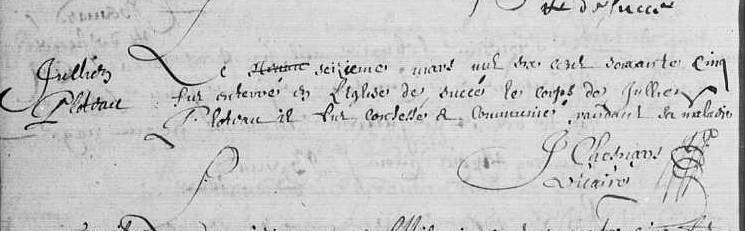 de Succé
Jullien
Ploteau
Le seizieme mars mil six cent soixante cinq
fut enterré en l'Eglise de succé le corps de Jullien
Ploteau il fut confessé & communié pandant sa maladie
J Chesnays
vicaire